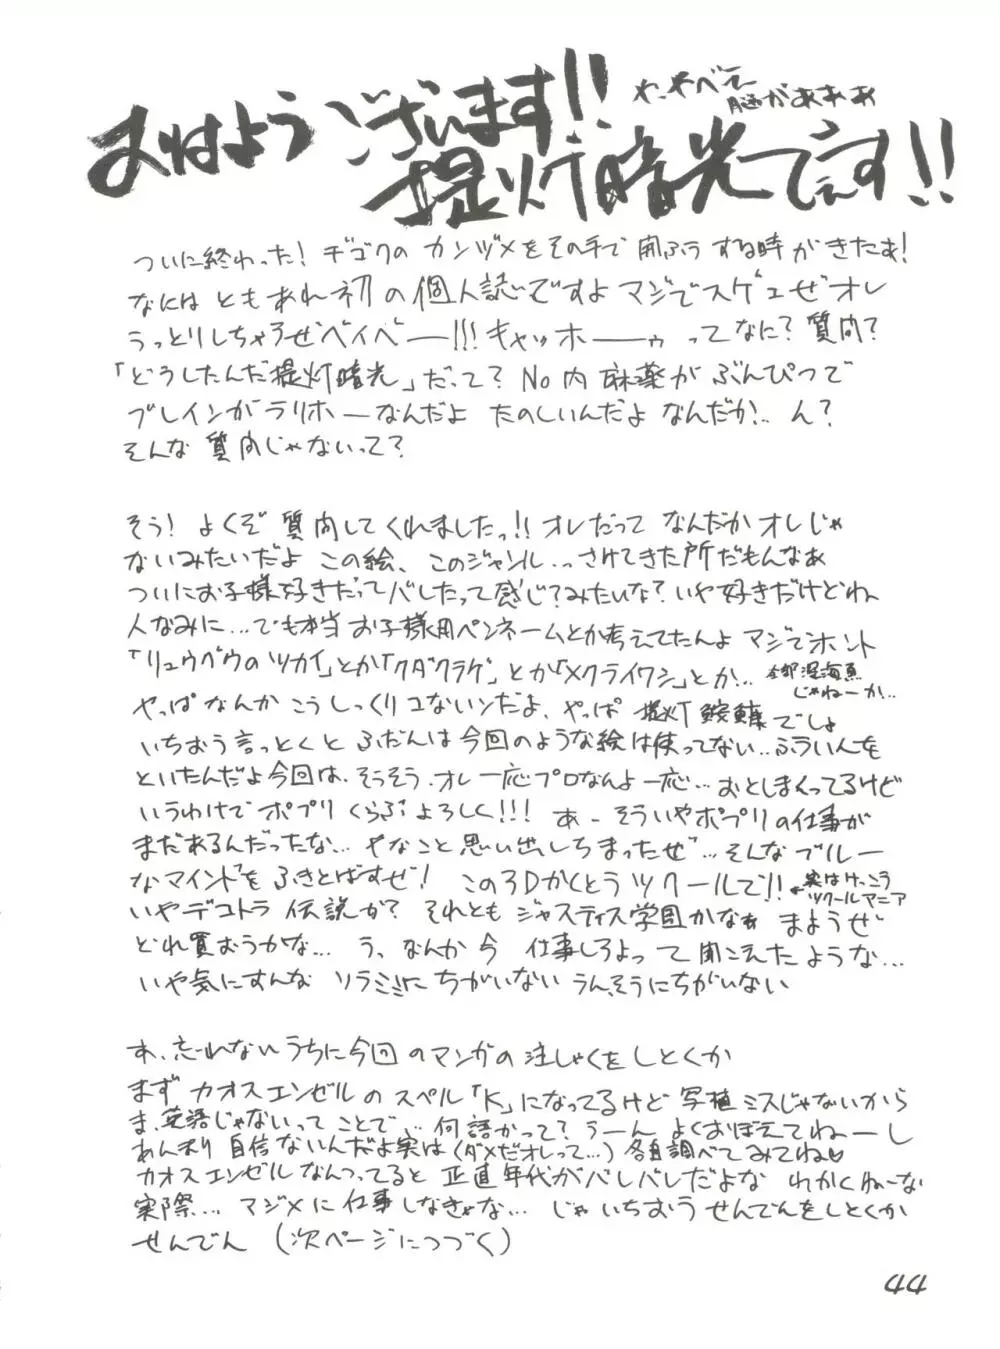 おはようございます!!
わ、やべえ
脳がぁぁぁ
提灯暗光でぇす!!
ついに終わった! ヂゴクのカンヅメをその手で開ふうする時がきたぁ!
なにはともあれ初の個人誌ですよ マジでスゲェぜオレ
うっとりしちゃうぜベイベー!!! キャッホーゥ ってなに? 質問?
「どうしたんだ提灯暗光」だって? No内麻薬がぶんぴつで
ブレインがラリホーなんだよ たのしいんだよ なんだか!.. ん?
そんな質問じゃないって?
そう! よくぞ質問してくれましたっ!! オレだってなんだかオレじゃ
ないみたいだよ この絵、このジャンル.. さけてきた所だもんなぁ
ついにお子様好きだってバレたって感じ?みたいな? いや好きだけどね
人なみに...でも本当お子様用ペンネームとか考えてたんよ マジでホント
「リュウグウのツカイ」とか「クダクラゲ」とか「メクライワシ」とか..
全部深海魚
じゃねーか..
やっぱなんかこうしっくりコないンだよ、やっぱ提灯鮟鱇でしょ
いちおう言っとくと ふだんは今回のような絵は使ってない.. ふういんを
といたんだよ今回は. そうそう. オレ一応プロなんよ一応... おとしまくってるけど
いうわけでポプリくらぶよろしく!!! あ- そういやポプリの仕事が
まだあるんだったな... ヤなこと思い出しちまったぜ...そんなブルー
なマインドをふきとばすぜ! この3Dかくとうツクールで!!
←実はけっこう
ツクールマニア
いやデコトラ伝説か? それともジャスティス学園かなぁ まようぜ
どれ買おうかな... う、なんか今 仕事しろよって聞こえたような...
いや気にすんな ソラミミにちがいない うん、そうにちがいない
あ、忘れないうちに今回のマンガの注しゃくをしとくか
まずカオスエンゼルのスペル「K」になってるけど写植ミスじゃないから
ま、英語じゃないってことで... 何語かって? うーん よくおぼえてねーし
あんまり自信ないんだよ実は(ダメだオレって...) 各自調べてみてね♡
カオスエンゼルなんつってると正直年代がバレバレだよな わかくねーな
実際... マジメに仕事しなきゃな... じゃいちおうせんでんをしとくか
せんでん (次ページにつづく)
44